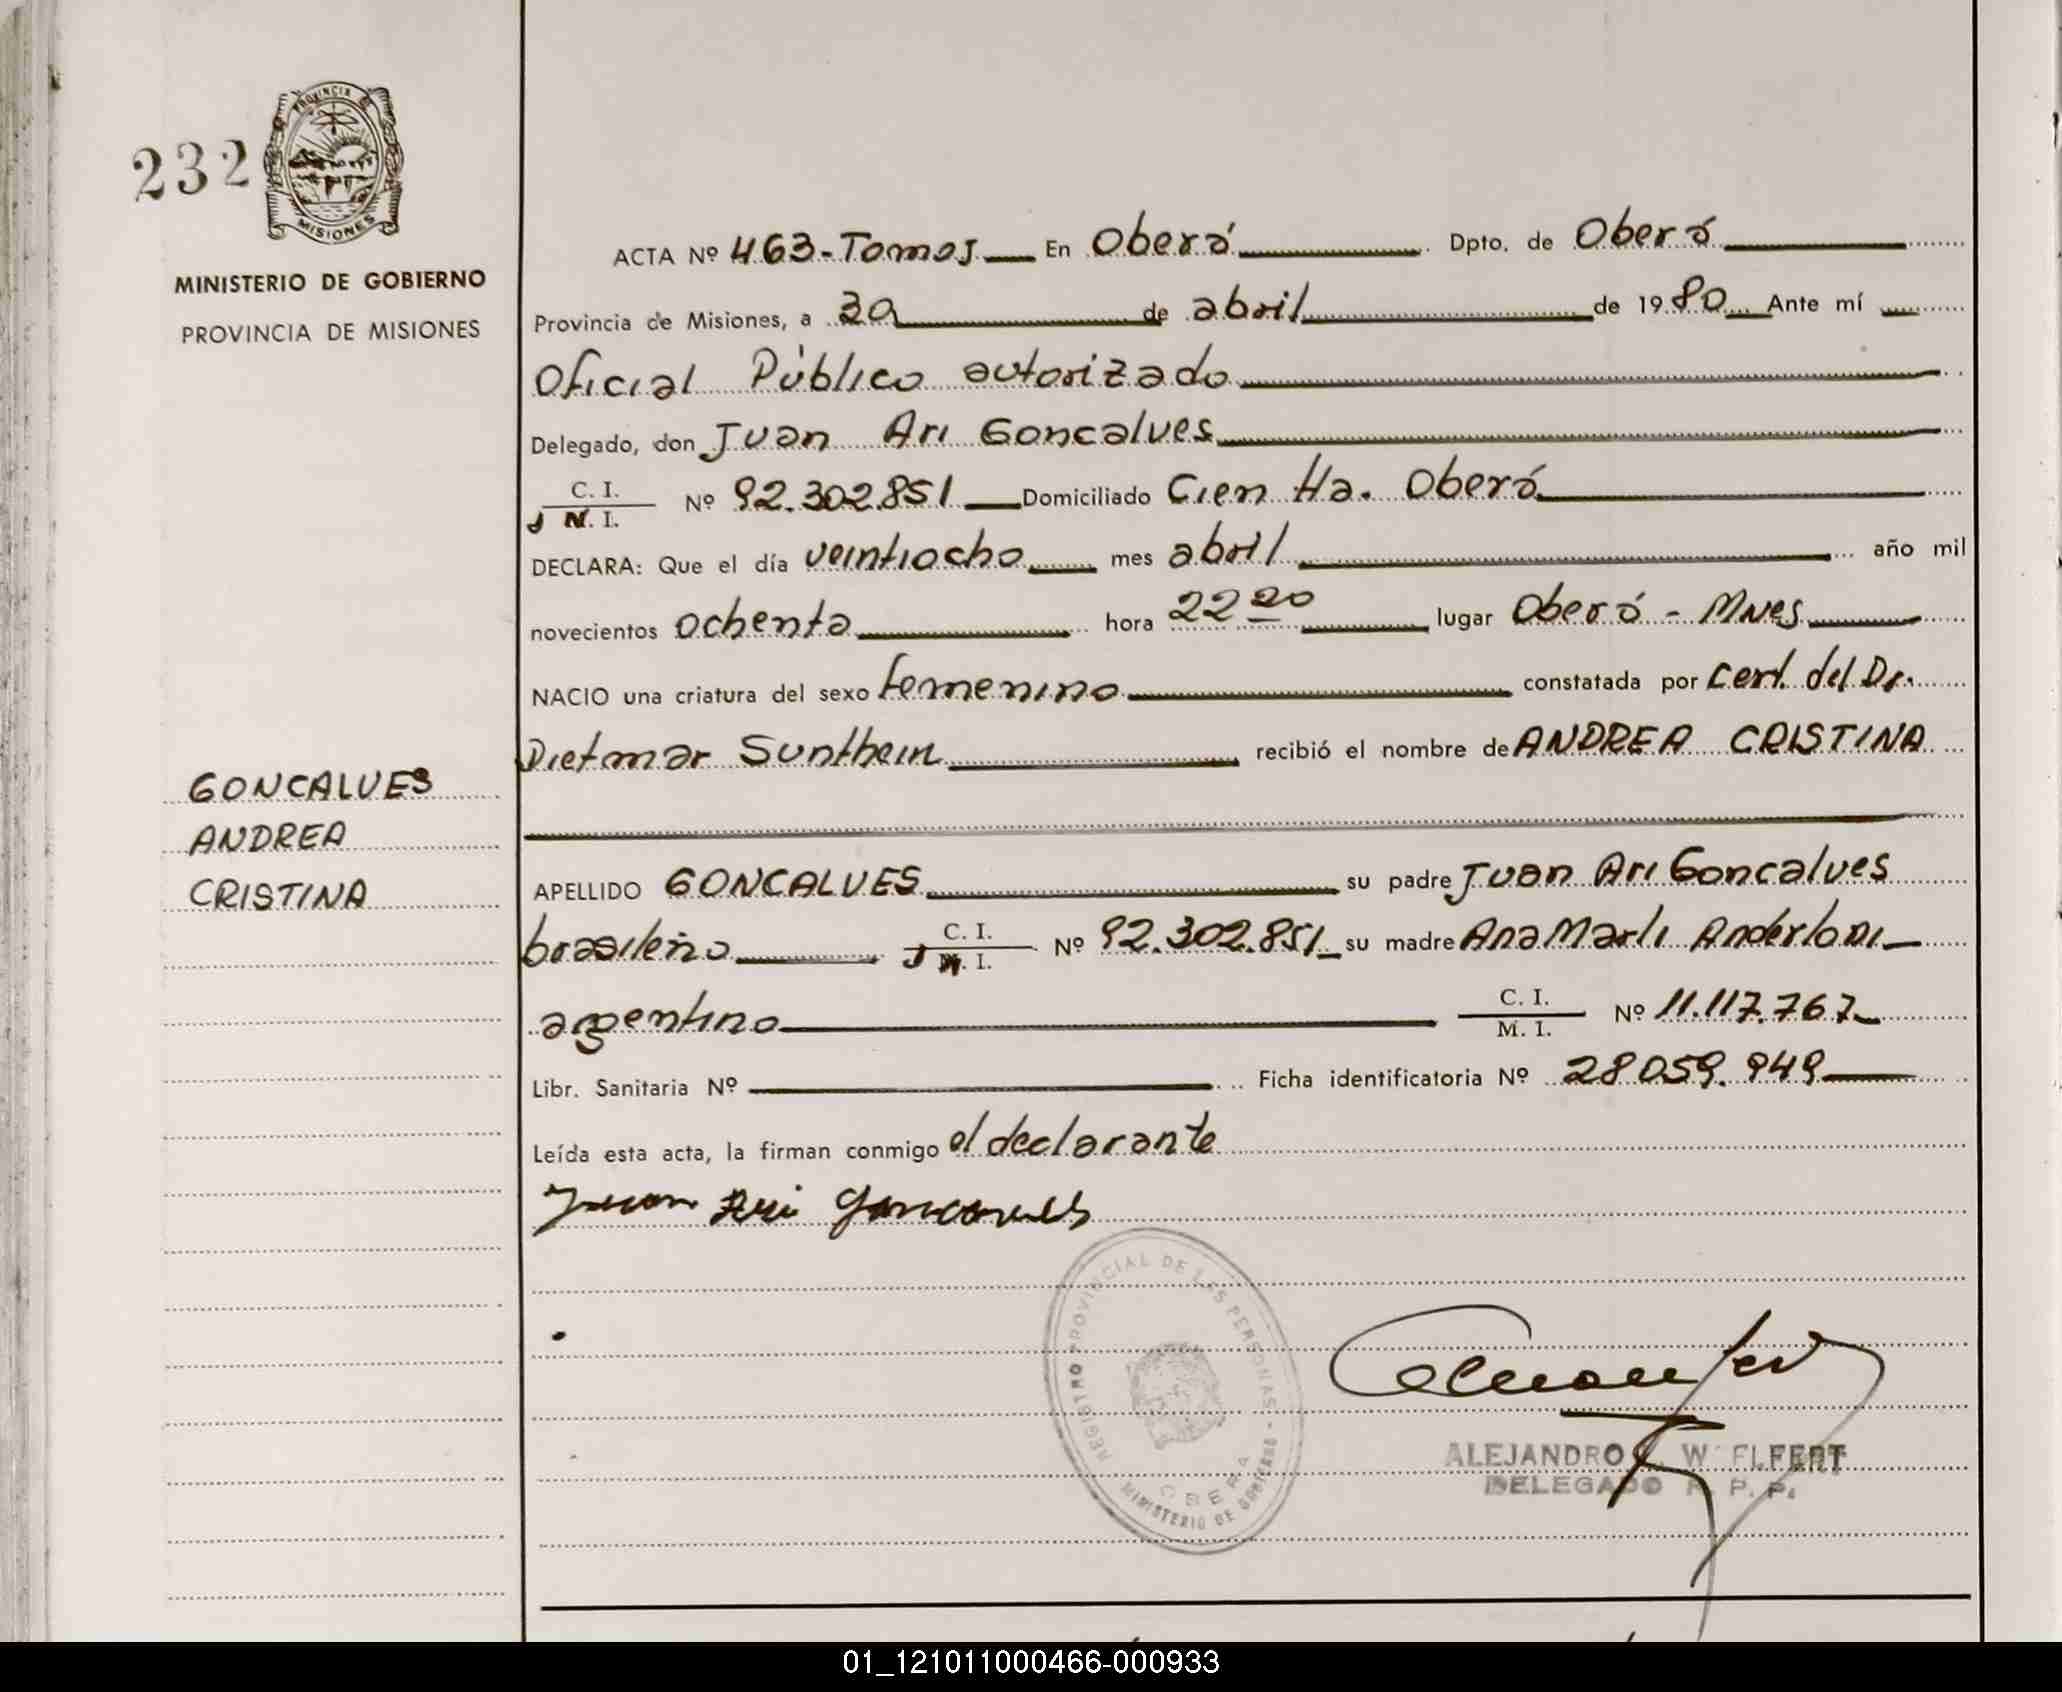 232
PROVINCIA DE
MISIONES
MINISTERIO DE GOBIERNO
PROVINCIA DE MISIONES
ACTA Nº 463-Tomo J En Oberá Dpto. de Oberá
Provincia de Misiones, a 30 de abril de 1980 Ante mí
Oficial Público autorizado
Delegado, don Juan Ari Goncalves
C. I.
M. I. Nº 92.302.851 Domiciliado Cien Ha. Oberá
DECLARA: Que el día veintiocho mes abril año mil
novecientos ochenta hora 22 20 lugar Oberá - Mnes
NACIO una criatura del sexo femenino constatada por Cert. del Dr.
Dietmar Sunthein recibió el nombre de ANDREA CRISTINA
GONCALVES
ANDREA
CRISTINA
APELLIDO GONCALVES su padre Juan Ari Goncalves
brasileño C. I. M. I. Nº 92.302.851 su madre Ana Marli Anderloni
argentino C. I. M. I. Nº 11.117.767
Libr. Sanitaria Nº Ficha identificatoria Nº 28059.949
Leída esta acta, la firman conmigo el declarante
Juan Ari Goncalves
REGISTRO PROVINCIAL DE LAS PERSONAS - MINISTERIO DE GOBIERNO
OBERA
ALEJANDRO W FLFERT
DELEGADO R. P. P.
01_121011000466-000933